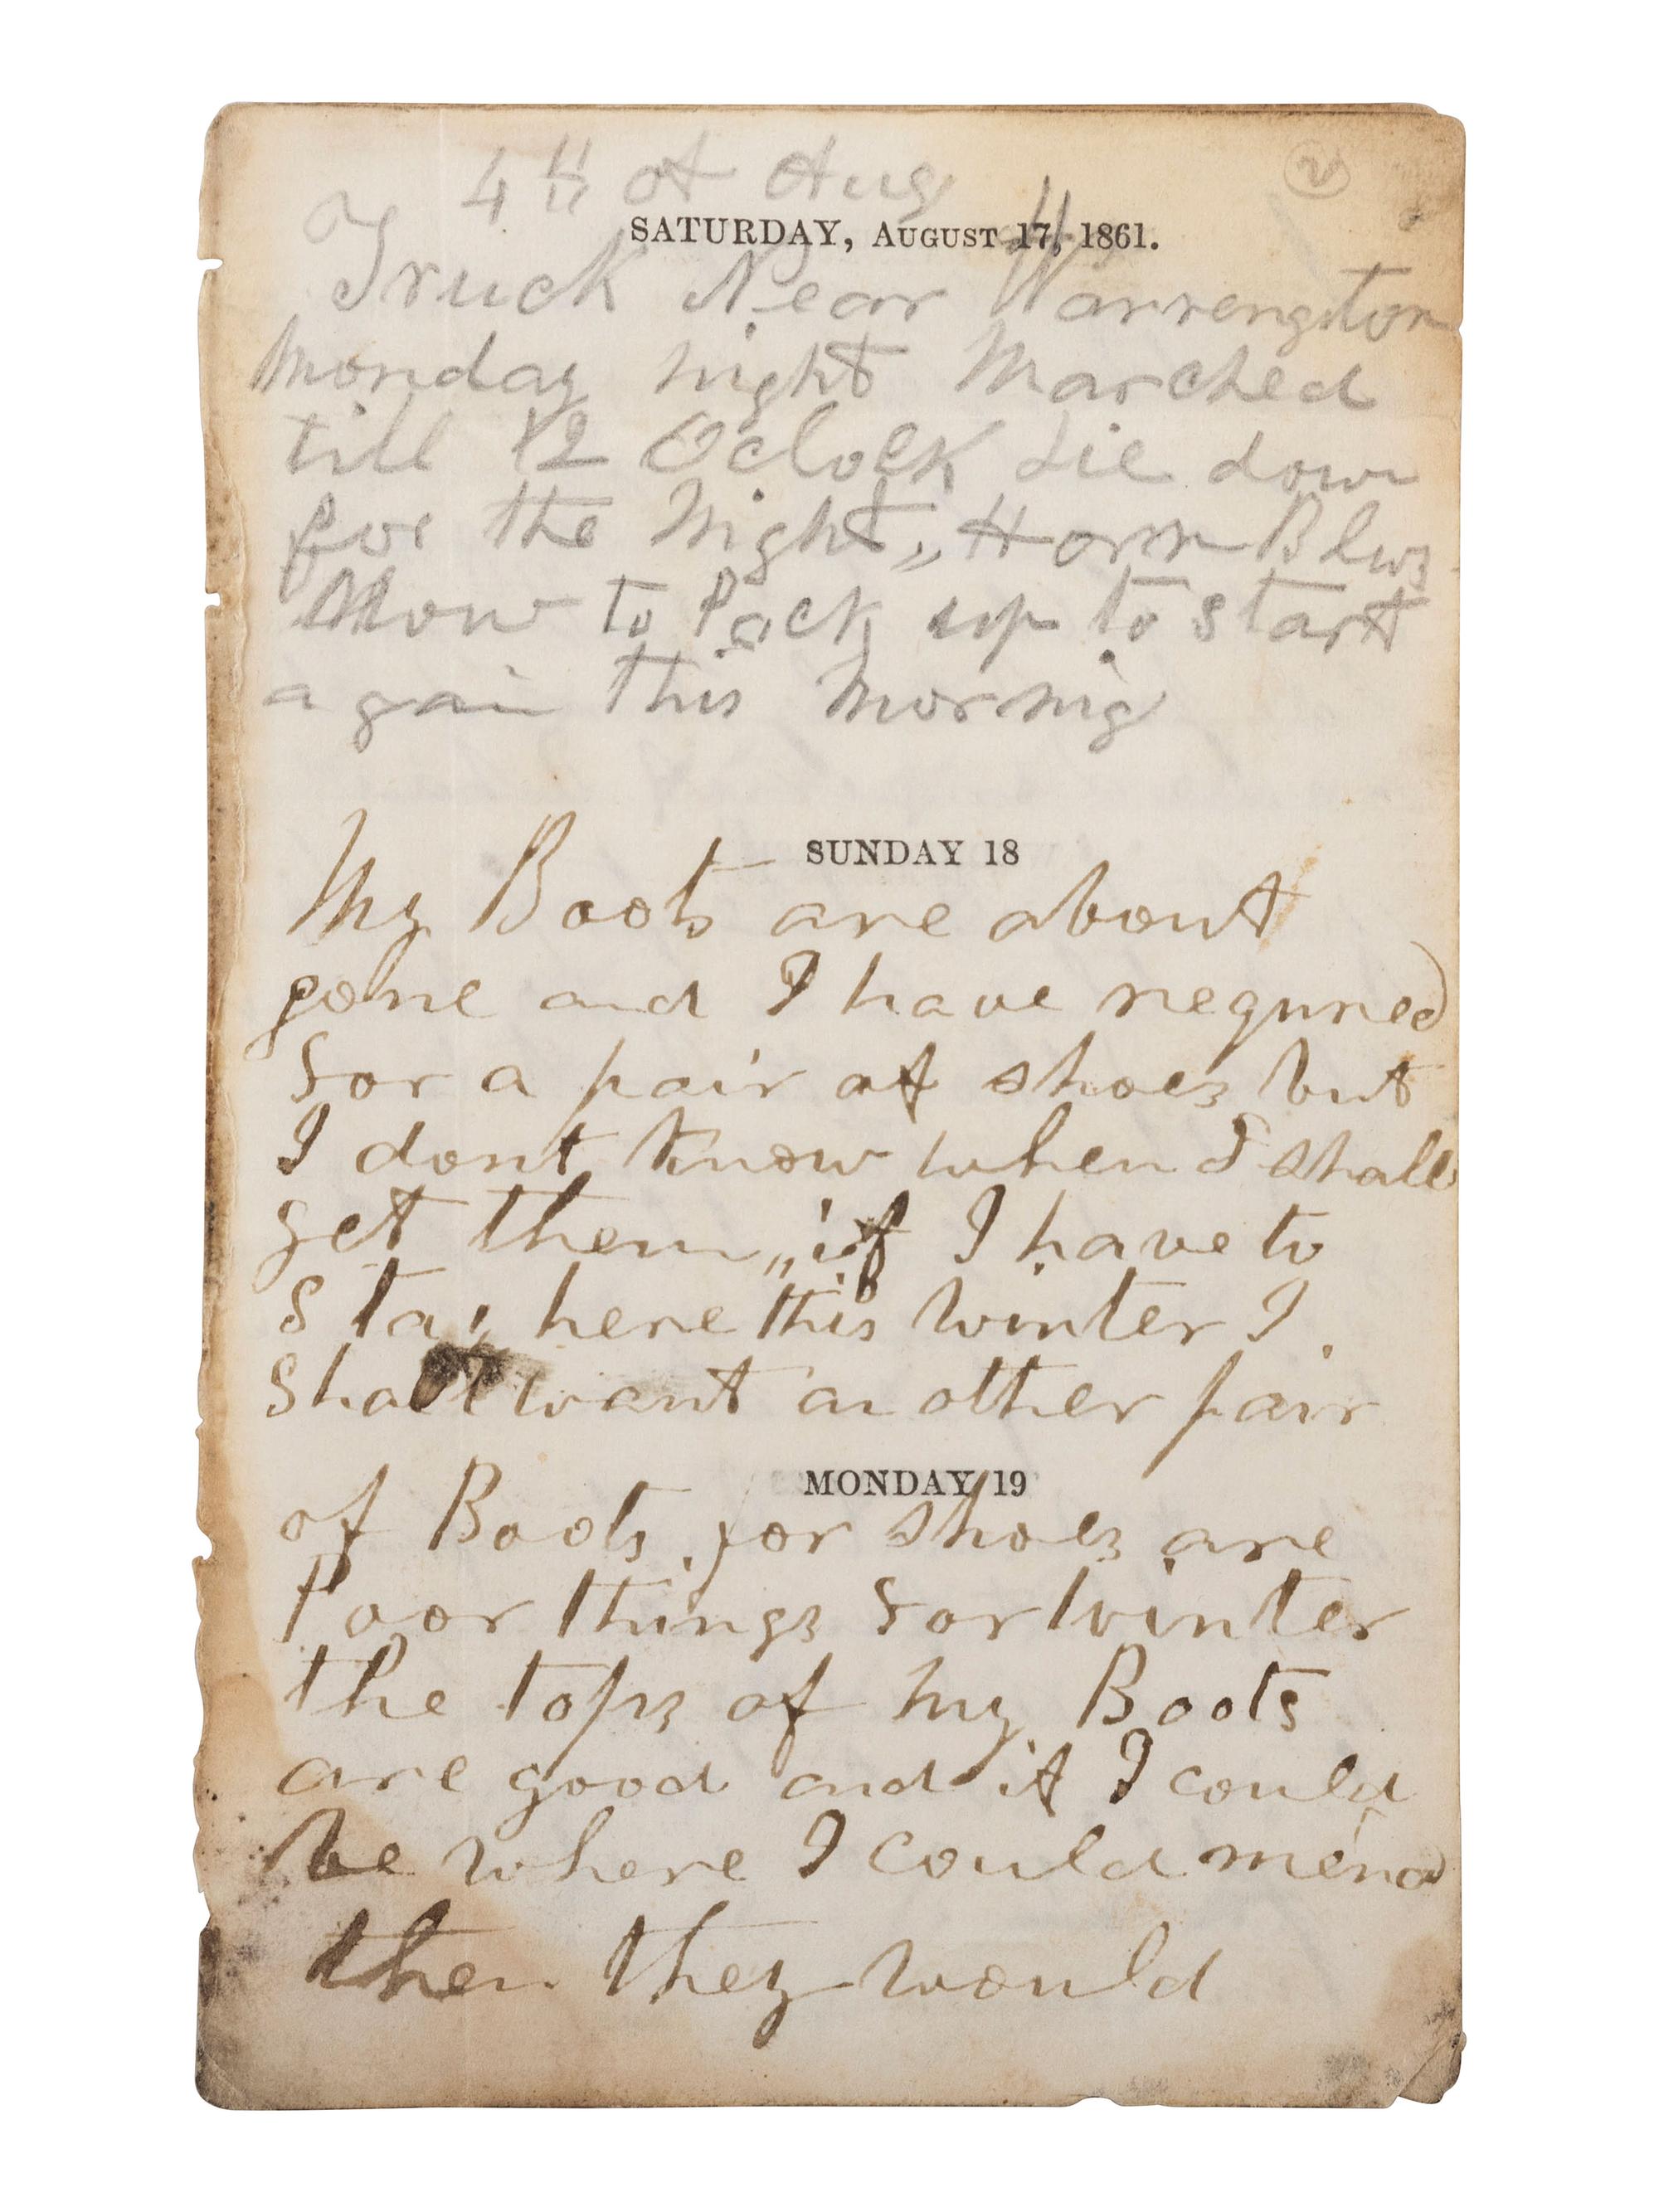 4th of Aug
②
SATURDAY, AUGUST 17, 1861.
Truck Near Warrengton
Monday night Marched
till 12 Oclock Lie down
for the Night,, Horn Blws
Now to Pack up to start
again this Mornig
SUNDAY 18
My Boots are about
gone and I have requried
for a pair of shoes but
I dont know when I shall
get them,, if I have to
Stay here this Winter I
Shall want an other pair
MONDAY 19
of Boots for shoes are
Poor things for Winter
the tops of my Boots
are good and if I could
be where I could mend
then they would